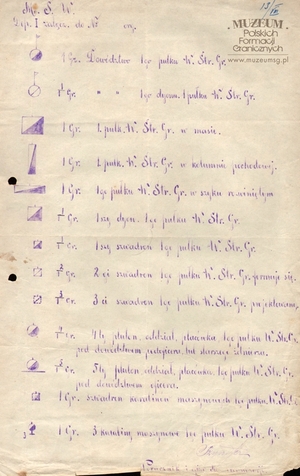 MUZEUM
Polskich
Formacji
Granicznych
www.muzeumsg.pl
1 Gr. Dowództwo 1go pułku W. Str. Gr.
1 Gr. " " 1go dyonu 1 pułku W. Str. Gr.
1 Gr. 1. pułk. W. Str. Gr. w masie.
1 Gr. 1. pułk. W. Str. Gr. w kolumnie pochodowej.
1 Gr. 1go pułku W. Str. Gr. w szyku rozwiniętym
1 Gr. 1szy dyon. 1go pułku W. Str. Gr.
1 Gr. 1szy szwadron 1go pułku W. Str. Gr.
2 Gr. 2gi szwadron 1go pułku W. Str. Gr. formuje się.
3 Gr. 3ci szwadron 1go pułku W. Str. Gr. projektowany.
4 Gr. 4ty pluton, oddział, placówka 1go pułku W. Str. Gr.
pod dowództwem podoficera lub starszego żołnierza.
5 Gr. 5ty pluton, oddział, placówka 1go pułku W. Str. Gr.
pod dowództwem oficera.
1 Gr. szwadron karabinów maszynowych 1go pułku W. Str. Gr.
3 Gr. 3 karabiny maszynowe 1go pułku W. Str. Gr.